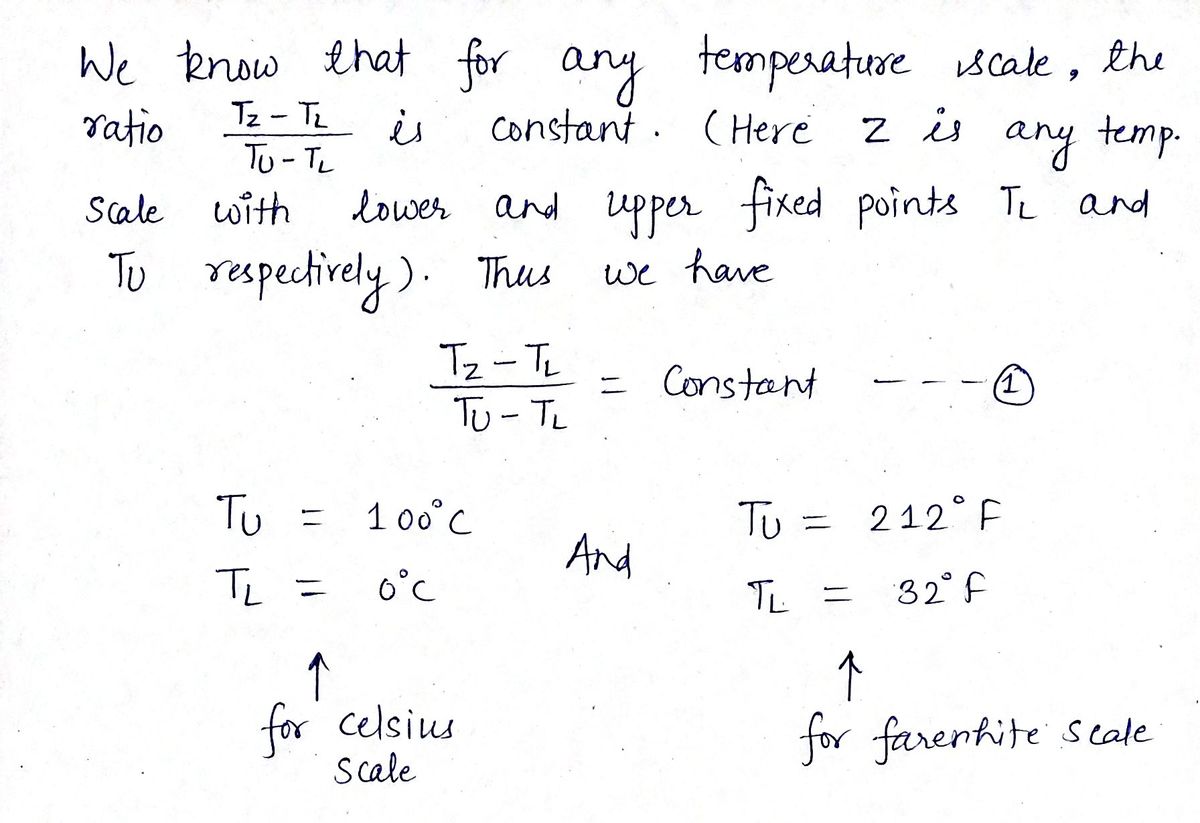 We know that for any temperature scale, the
ratio (T_Z - T_L)/(T_U - T_L) is constant. (Here Z is any temp.
Scale with lower and upper fixed points T_L and
T_U respectively). Thus we have
(T_Z - T_L)/(T_U - T_L) = Constant - - - ①
T_U = 100°C And T_U = 212°F
T_L = 0°C T_L = 32°F
↑ ↑
for celsius for farenhite scale
Scale